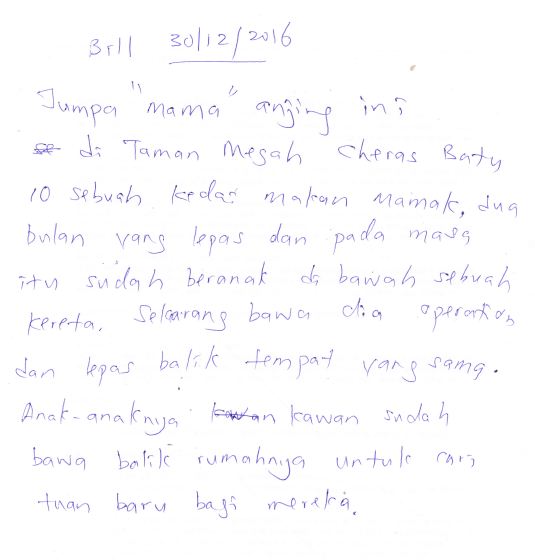 Brll 30/12/2016
Jumpa "mama" anjing ini
di Taman Megah Cheras Batu
10 sebuah kedai makan mamak, dua
bulan yang lepas dan pada masa
itu sudah beranak di bawah sebuah
kereta. Sekarang bawa dia operation
dan lepas balik tempat yang sama.
Anak-anaknya kawan kawan sudah
bawa balik rumahnya untuk cari
tuan baru bagi mereka.